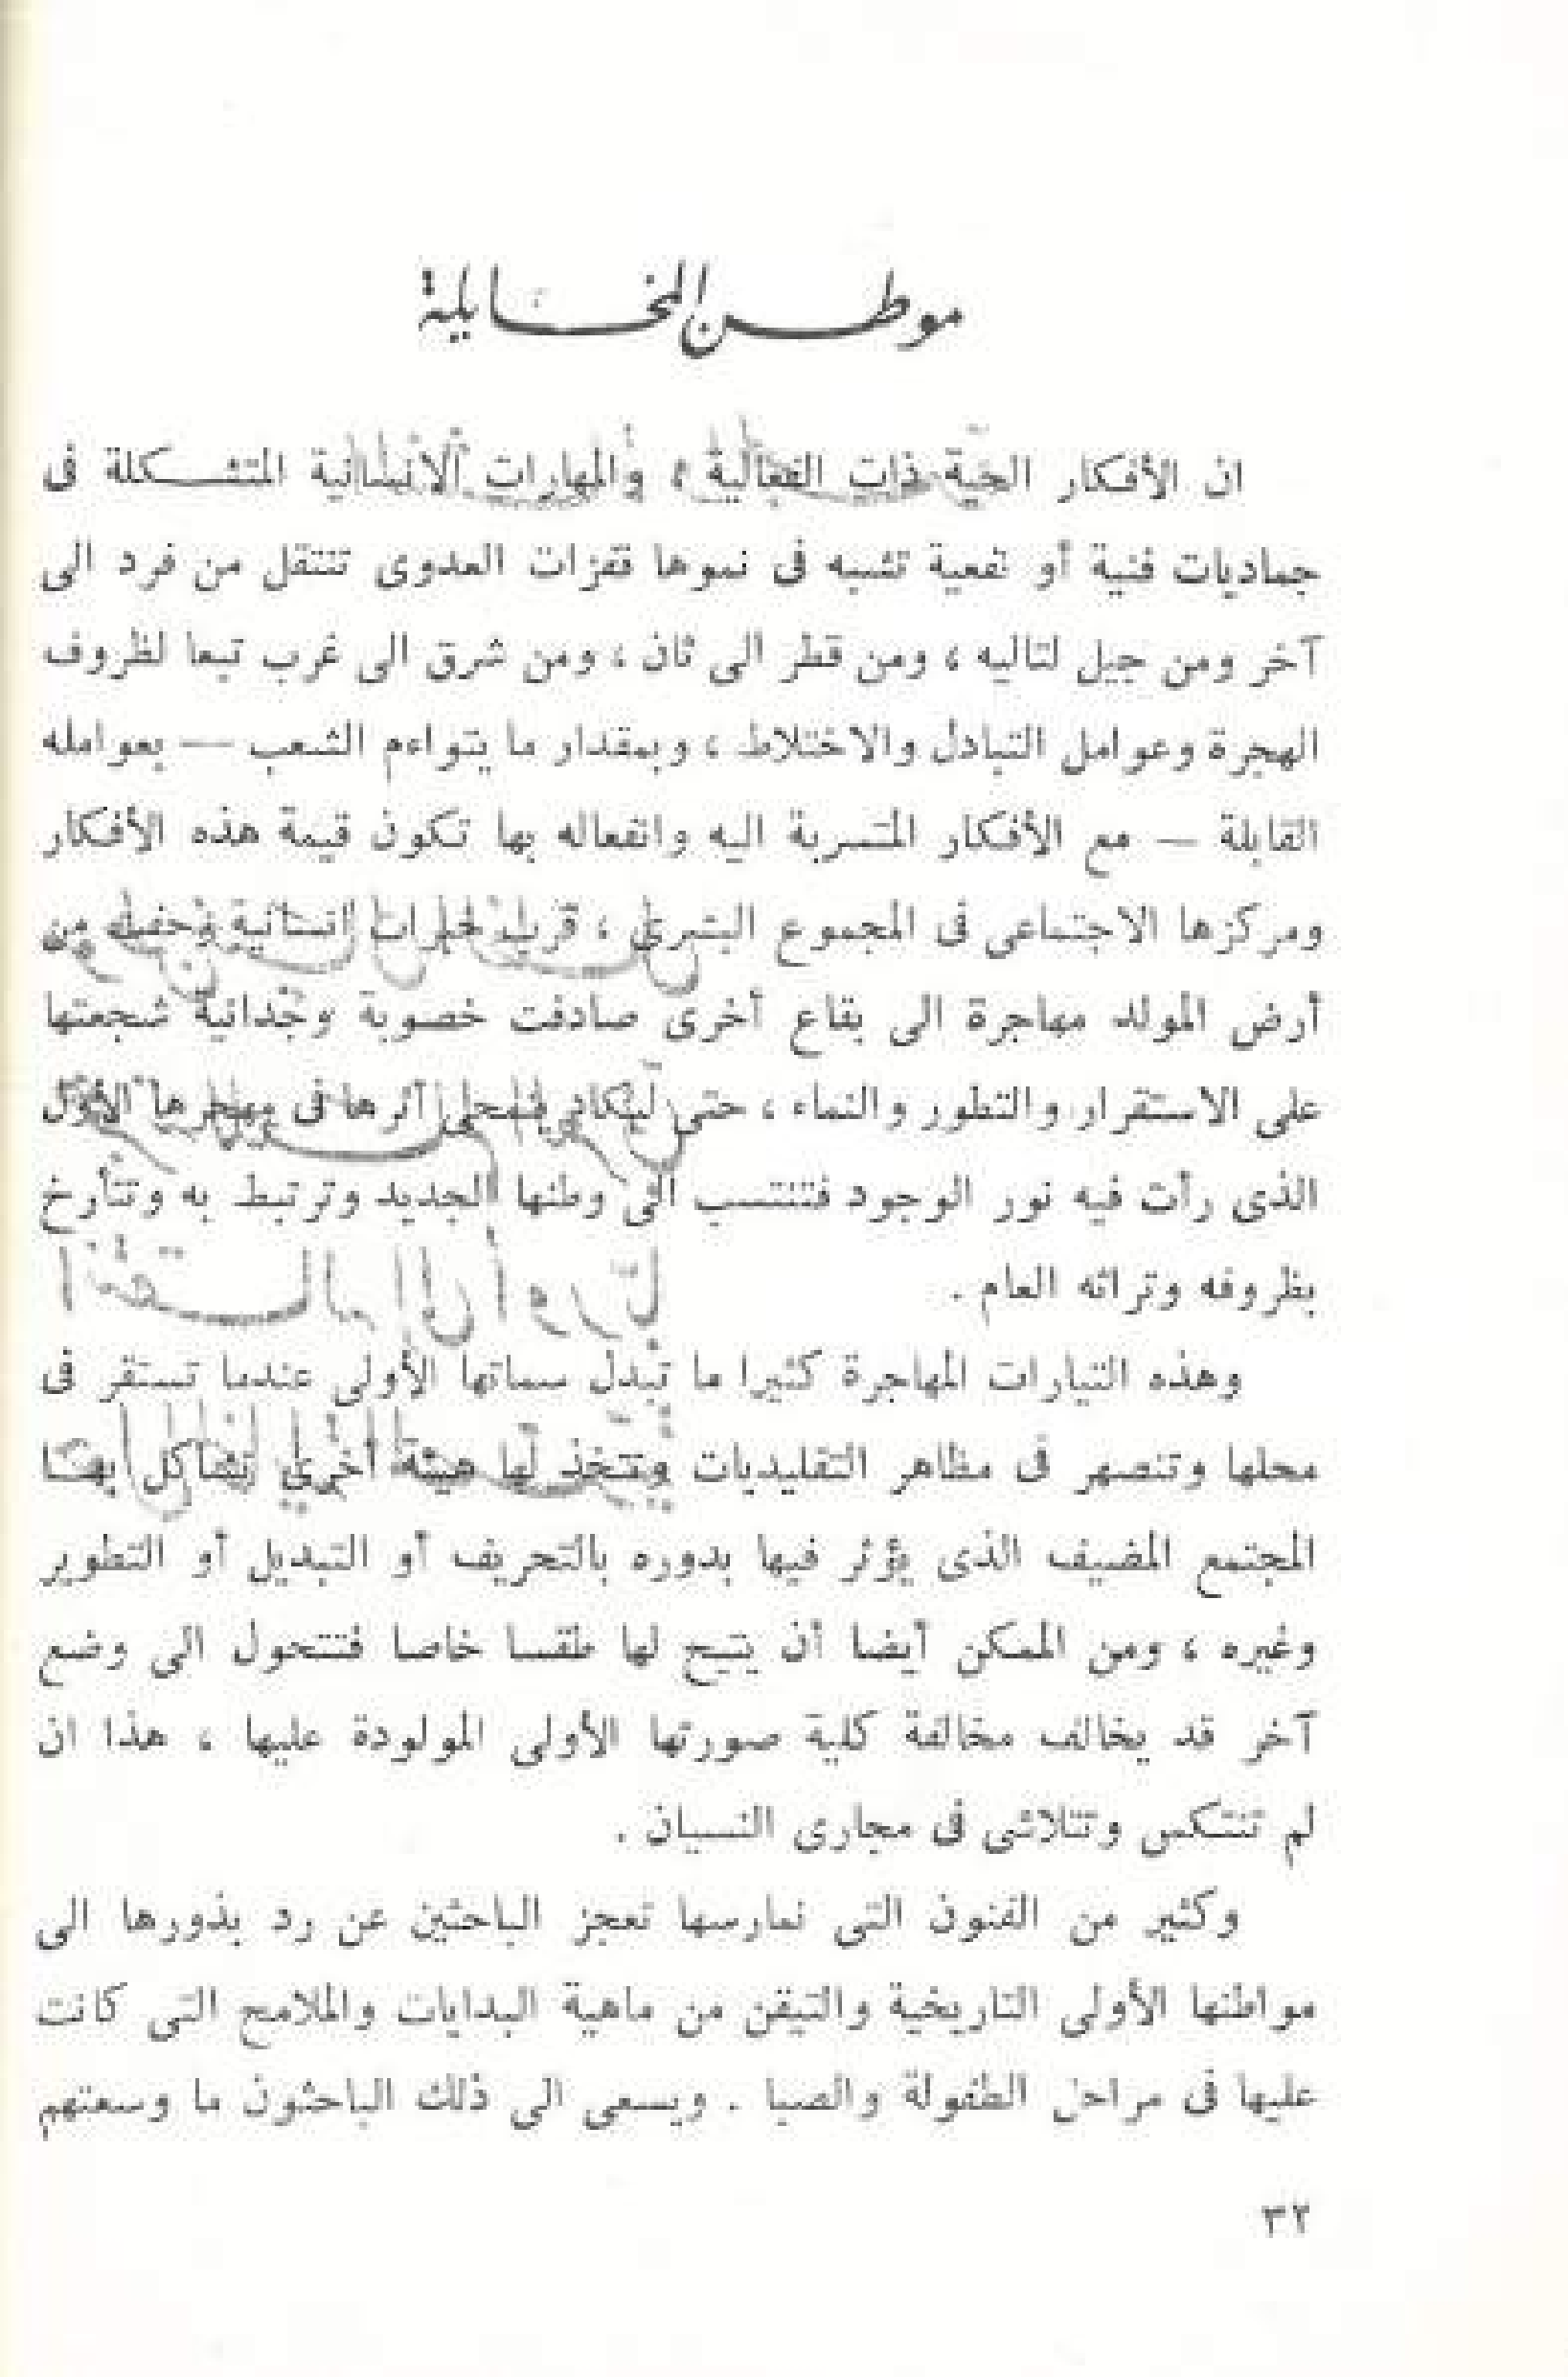 موطن المخايلة
ان الأفكار الحية ذات الفعالية ، والمهارات الانسانية المتشكلة فى
جماديات فنية أو نفعية تشبه فى نموها قفزات العدوى تنتقل من فرد الى
آخر ومن جيل لتاليه ، ومن قطر الى ثان ، ومن شرق الى غرب تبعا لظروف
الهجرة وعوامل التبادل والاختلاط ، وبمقدار ما يتواءم الشعب — بعوامله
القابلة — مع الأفكار المتسربة اليه وانفعاله بها تكون قيمة هذه الأفكار
ومركزها الاجتماعى فى المجموع البشرى ، انسانية من
أرض المولد مهاجرة الى بقاع أخرى صادفت خصوبة وجدانية شجعتها
على الاستقرار والتطور والنماء ، حتى ليكاد يمحى أثرها فى مهجرها الأول
الذى رأت فيه نور الوجود فتنتسب الى وطنها الجديد وترتبط به وتتأرخ
بظروفه وتراثه العام .
وهذه التيارات المهاجرة كثيرا ما تبدل سماتها الأولى عندما تستقر فى
محلها وتنصهر فى مظاهر التقليديات وتتخذ لها هيئة أخرى تشاكل بهــا
المجتمع المضيف الذى يؤثر فيها بدوره بالتحريف أو التبديل أو التطوير
وغيره ، ومن الممكن أيضا أن يتيح لها طقسا خاصا فتتحول الى وضع
آخر قد يخالف مخالفة كلية صورتها الأولى المولودة عليها ، هذا ان
لم تنتكس وتتلاشى فى مجارى النسيان .
وكثير من الفنون التى نمارسها تعجز الباحثين عن رد بذورها الى
مواطنها الأولى التاريخية والتيقن من ماهية البدايات والملامح التى كانت
عليها فى مراحل الطفولة والصبا . ويسعى الى ذلك الباحثون ما وسعتهم
٣٢